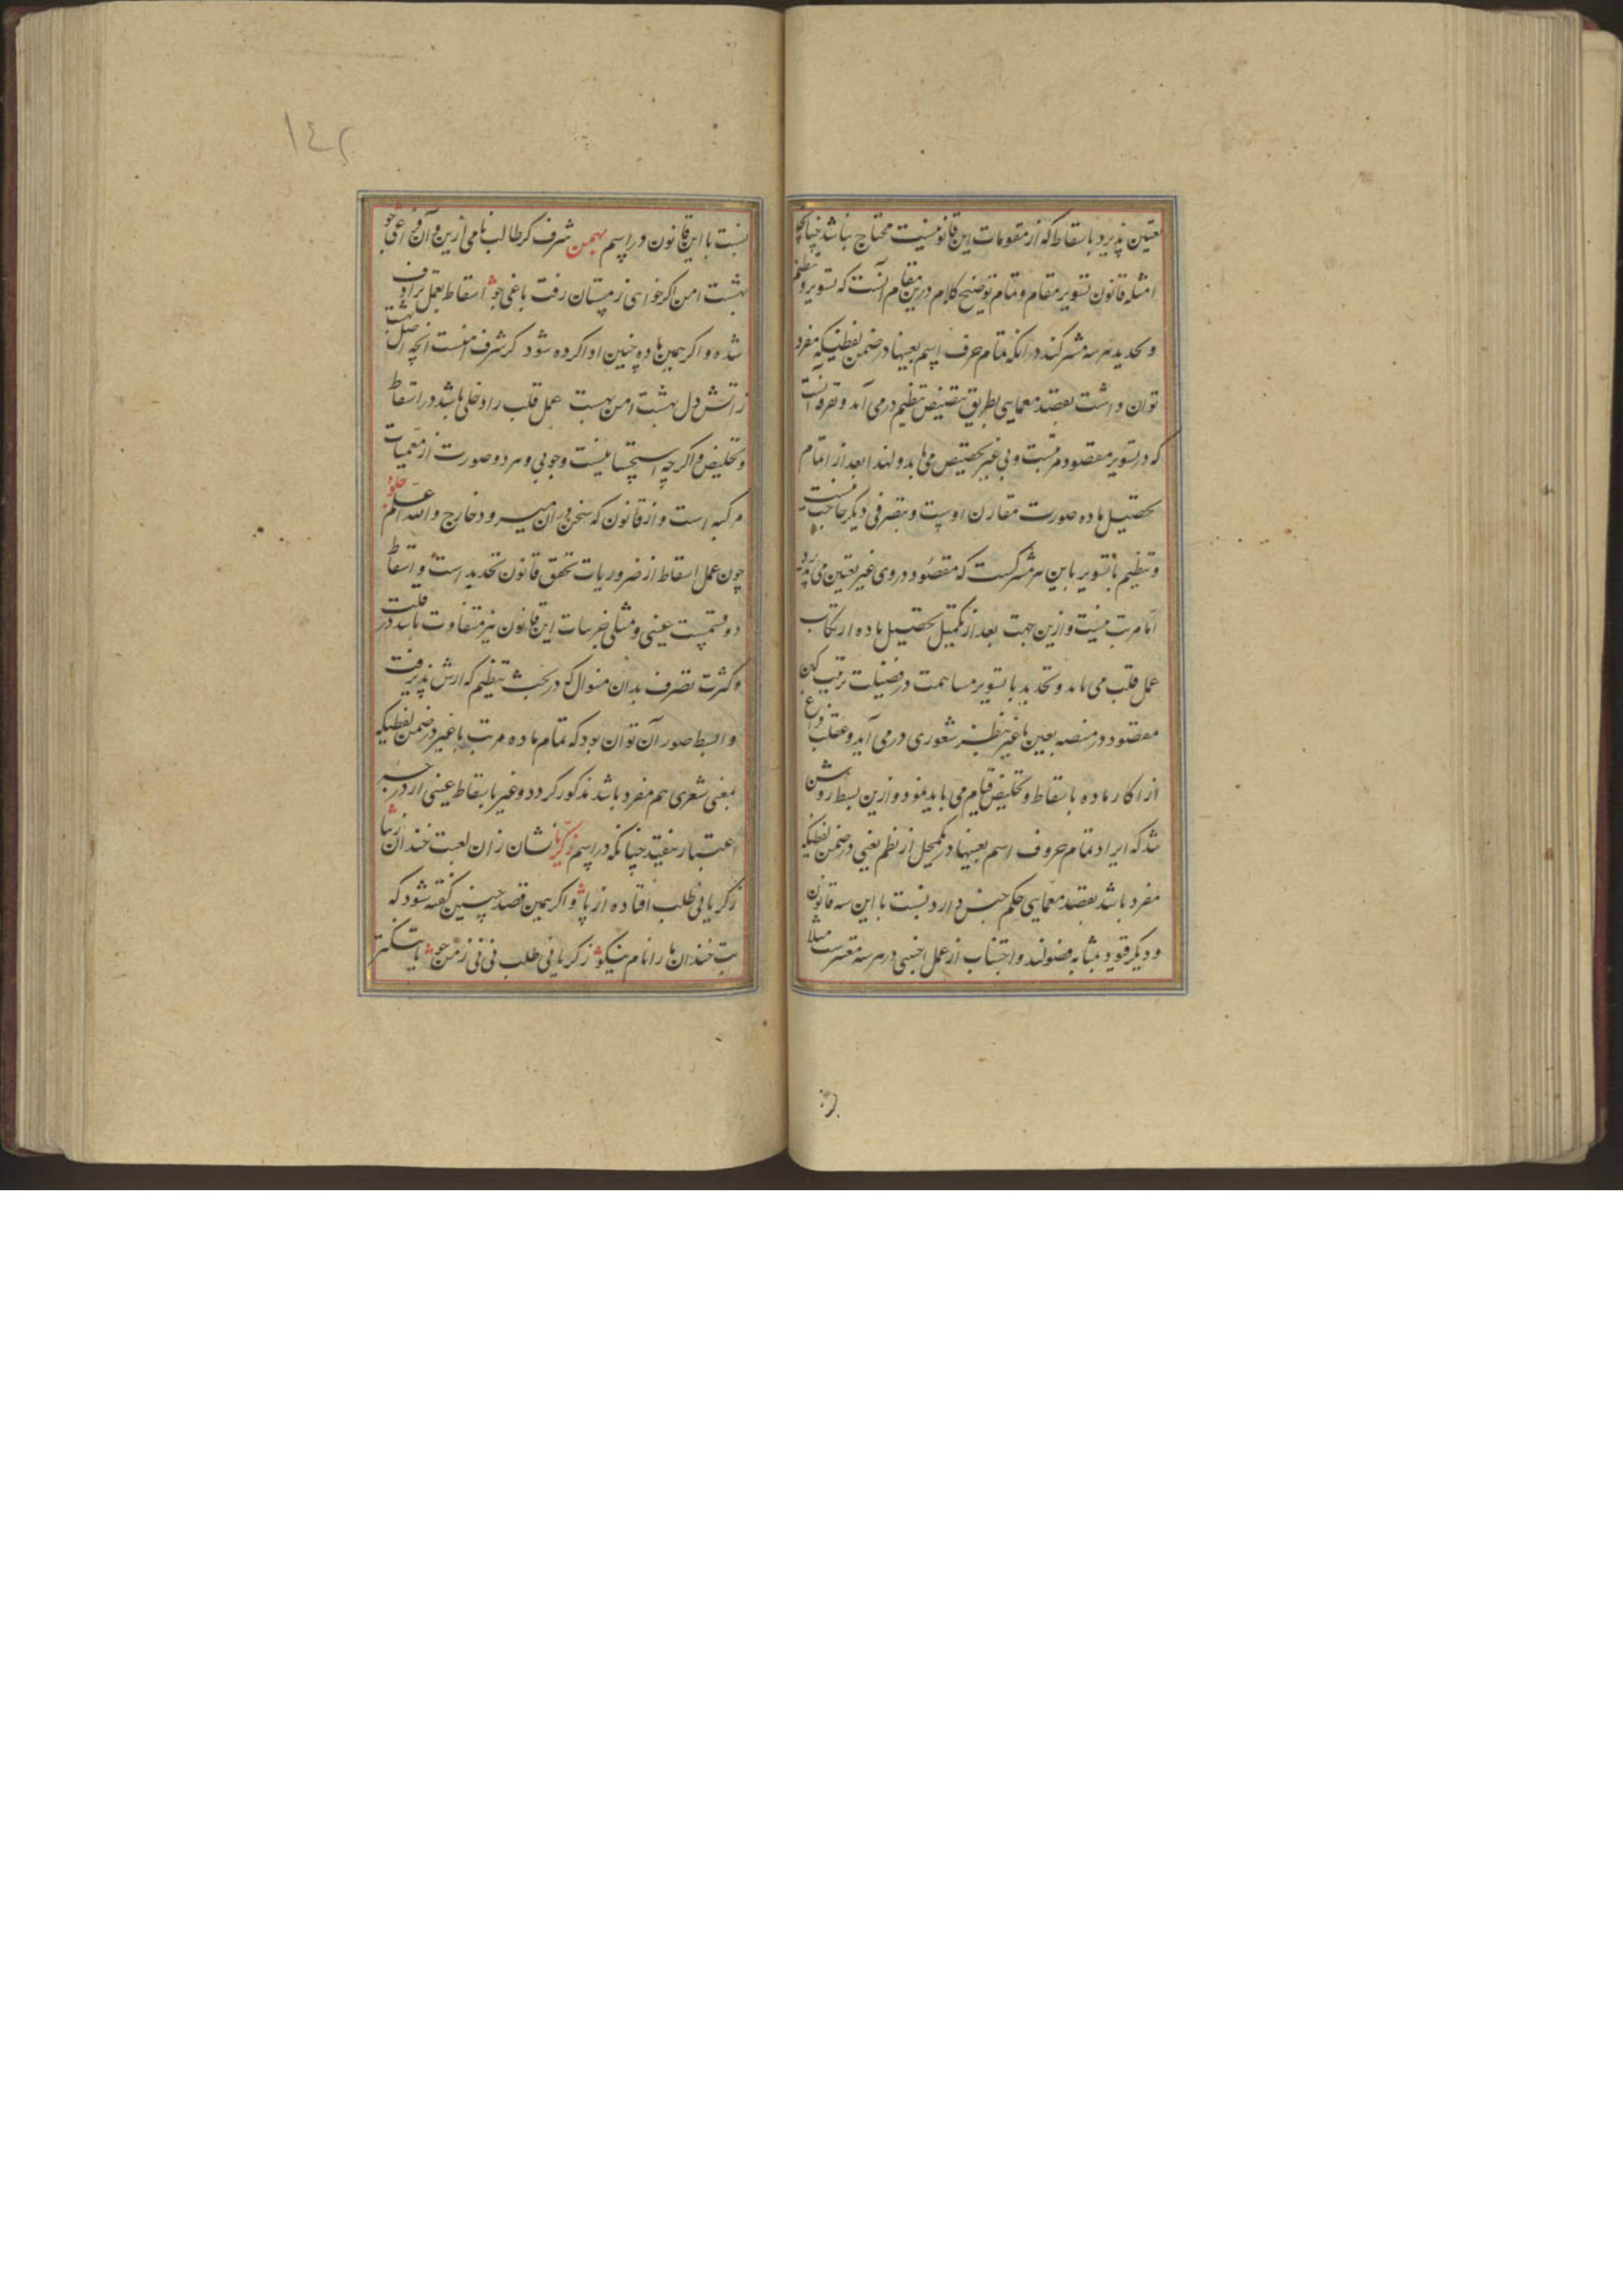 تعین پذیرد باسقاط که از مقومات این قانون نیست محتاج نباشد چنانکه
امثله قانون تسویر مقام و تمام توضیح کلام درین مقام آنست که تسویر و تنظیم
و تحدید هر سه مشترکند در آنکه تمام حرف اسم بعینها در ضمن لفظیکه مفرد
توان داشت بقصد معمایی بطریق تنصیص تنظیم درمی آمد و تفرقه آنست
که در تسویر مقصود مرتبست و بی غیر تخصیص می یابد و لهذا بعد از اتمام
تحصیل ماده صورت مقارن اوست و بتصرفی دیگر حاجت نیست
و تنظیم با تسویر باین مشترکست که مقصود در وی غیر تعین می پذیرد
اما مرتب نیست و ازین جهت بعد از تکمیل تحصیل ماده ارتکاب
عمل قلب می باید و تحدید با تسویر مساهمت در فضیلت ترتیب
مقصود در منصه تعین با غیر بنظر شعوری درمی آید و عقب فراغ
از ماده باسقاط و تخلیص قیام می باید نمود و ازین بسط روشن
شد که ایراد تمام حروف اسم بعینها در یکمحل از نظم یعنی در ضمن لفظیکه
مفرد باشد بقصد معمایی حکم جنس دارد نسبت با این سه قانون
و دیگر قیود بمثابه فصولند و اجتناب از عمل اجنبی در هر سه معتبرست مثلا
نسبت با این قانون در اسم بهمن شرف کر طالب نامی ازین و آن
بهشت امن اگر خواهی زمستان رفت باغی جو اسقاط بعمل ترادف
شده و اگر همین ماده چنین ادا کرده شود که شرف آنچه اصل بهشت
ز آتش دل بهشت امن بهست عمل قلب را دخلی باشد در اسقاط
و تخلیص و اگر چه استحسانیست وجوبی و هر دو صورت از معمیات
مرکبه است و از قانون که سخن در آن میرود خارج و الله اعلم جلوه
چون عمل اسقاط از ضروریات تحقق قانون تحدید است و اسقاط
دو قسمست عینی و مثلی جزییات این قانون نیز متفاوت باشد در قلت
و کثرت تصرف بدان منوال که در بحث تنظیم گزارش پذیرفت
و ابسط صور آن توان بود که تمام ماده مرتب با غیر در ضمن لفظیکه
بمعنی شعری هم مفرد باشد مذکور گردد و غیر باسقاط عینی از درجه
اعتبار بیفتد چنانکه در اسم زکریا نشان زان لعبت خندان زیبا
زکریایی طلب افتاده از پا و اگر همین قصد چنین گفته شود که
بت خندان ما را نام نیکو زکریایی طلب نی نی ز من جو